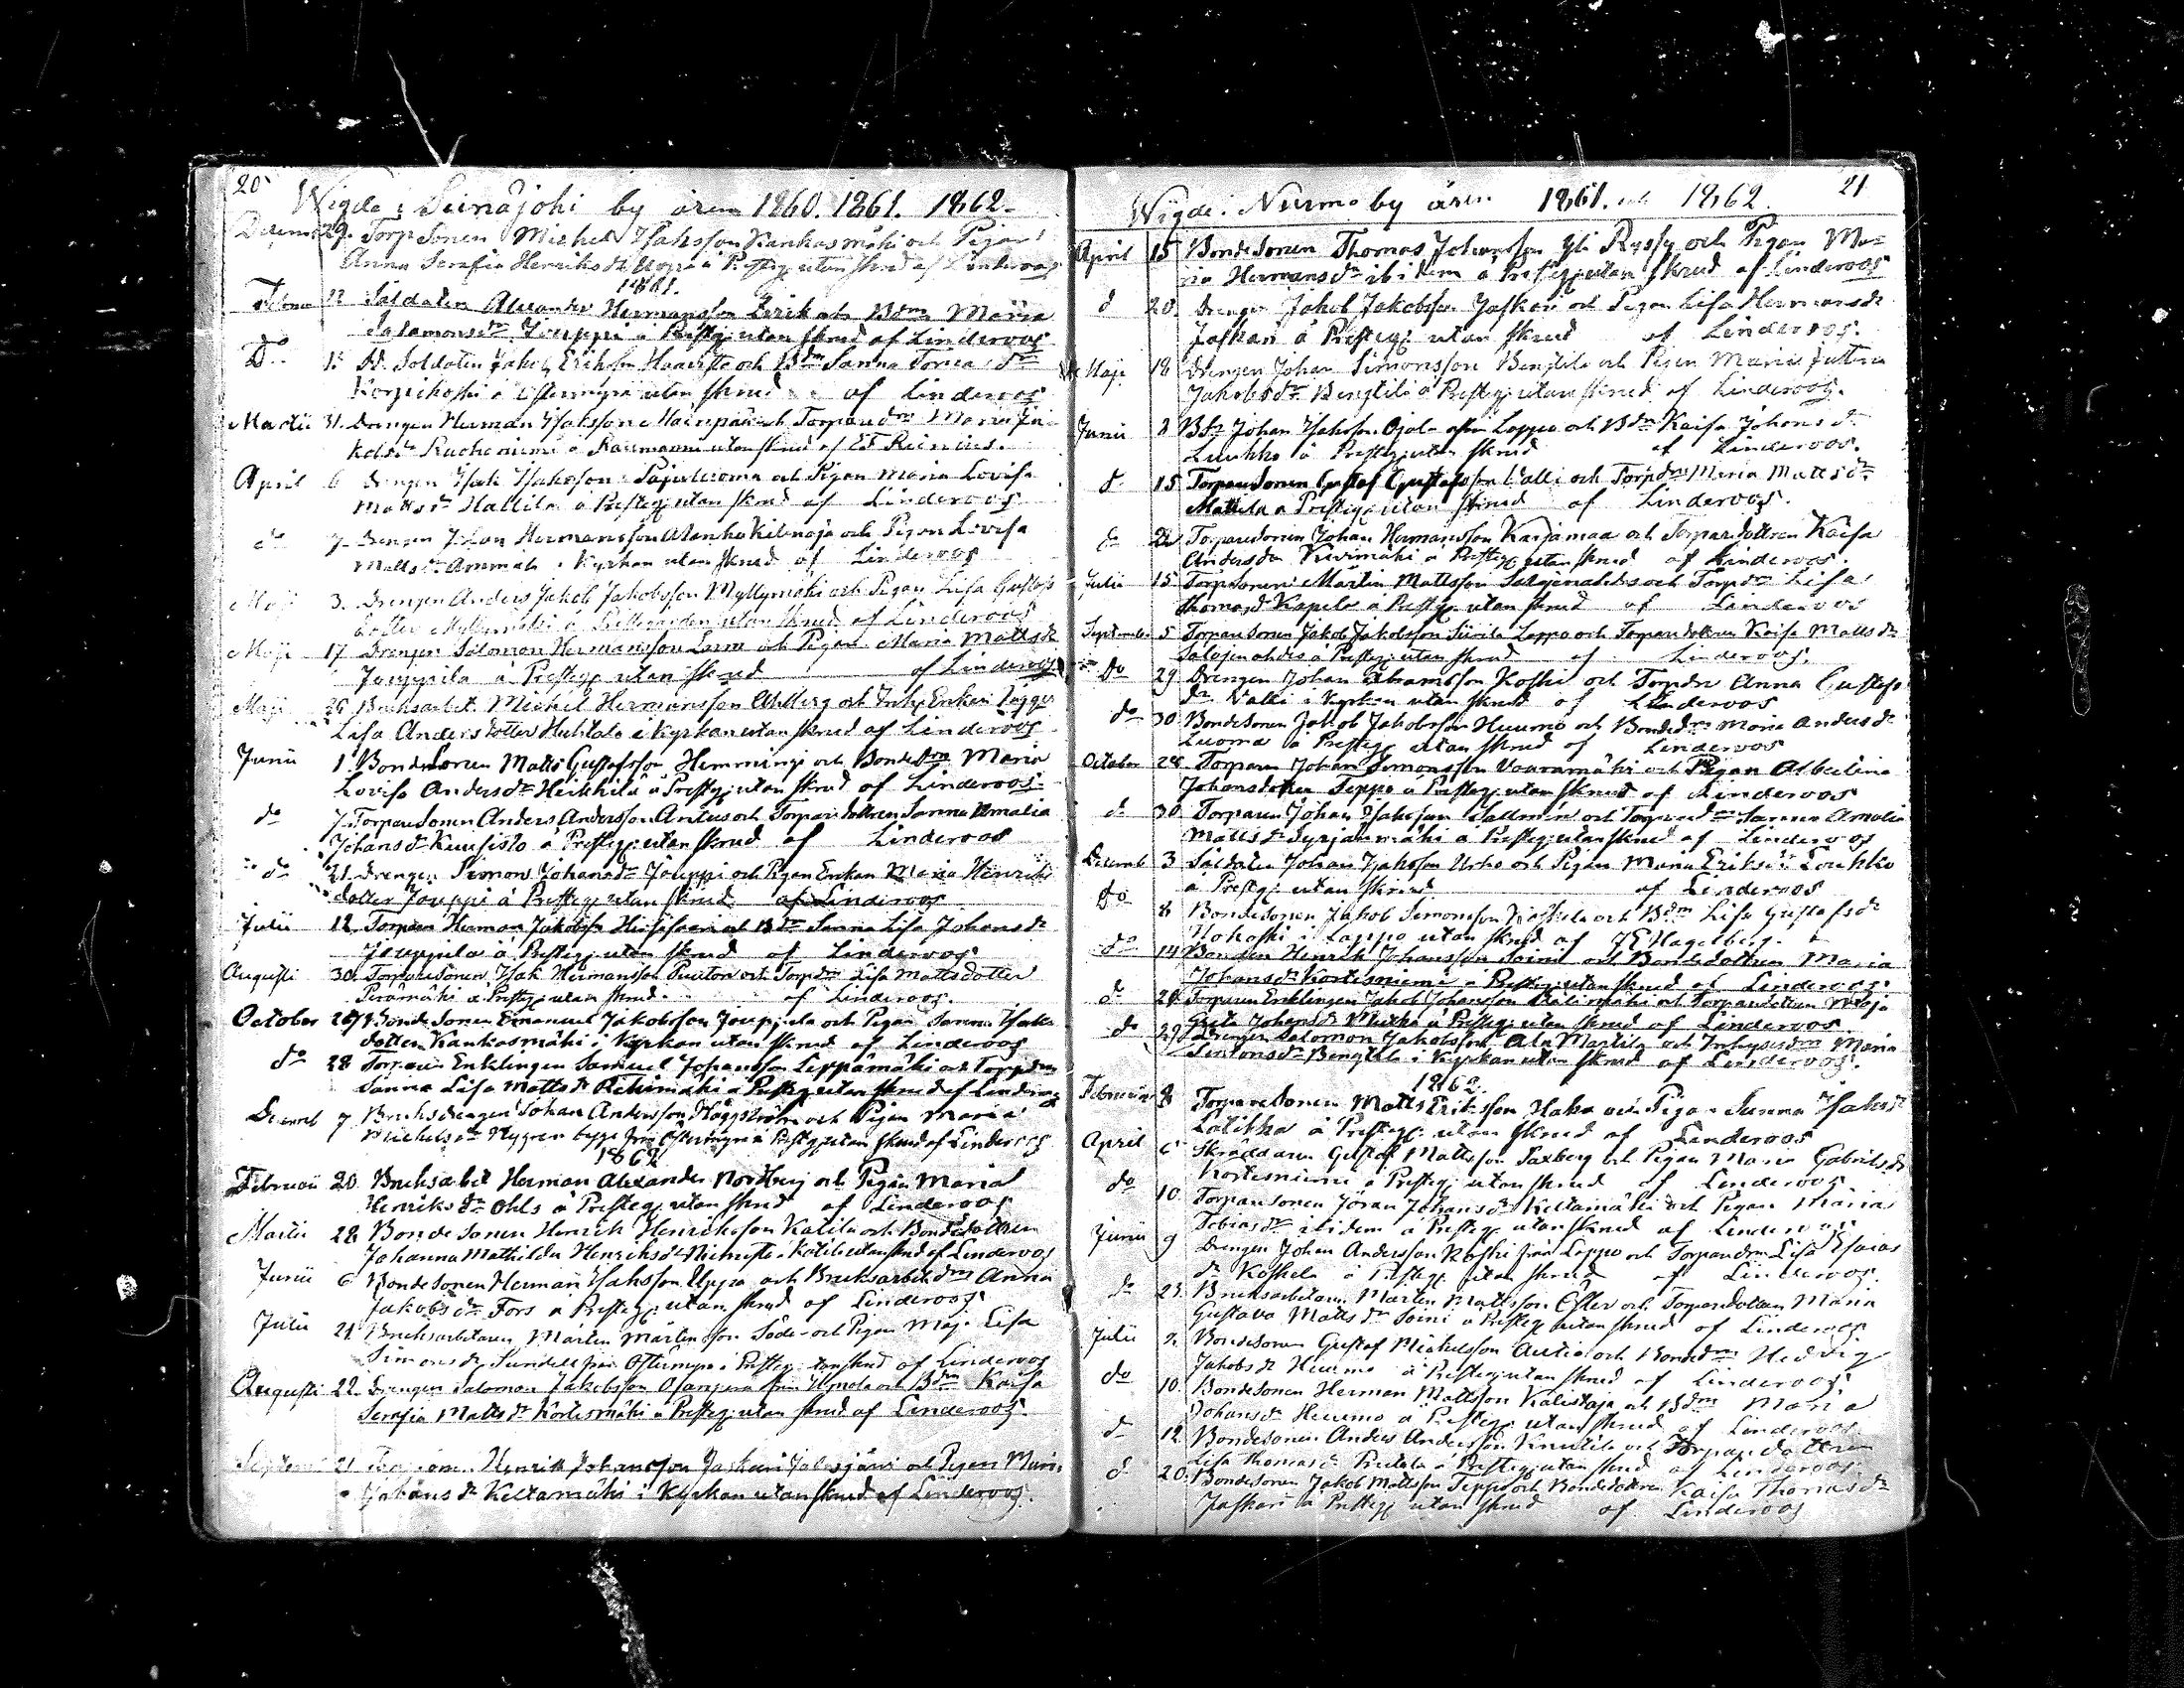 20
Wigde i Seinäjoki by åren 1860. 1861. 1862.
29. Torpsonen Michel Isaksson Kankasmäki och Pigan
Anna Serafia Henriksdr Uppa å Prestg: utan skrud af Linderoos
1861.
12 Soldaten Alexander Hermansson och Bdm Maria
Salamonsdr Jouppi å Prestg: utan skrud af Linderoos
Do Soldaten Jakob Eriksson och Bdm Sanna
Korpikoski i Östermyra utan skrud af Linderoos
Martii 31. Drengen Herman Isaksson och Torpardm Maria Ja-
kobsdr utan skrud af
April 6 Drengen Isak Isaksson och Pigan Maria Lovisa
Mattsdr Hallila å Prestg: utan skrud af Linderoos
do 7 Drengen Johan Hermansson Alanko och Pigan Lovisa
Mattsdr Ammala i Kyrkan utan skrud af Linderoos
Maji 3. Drengen Anders Jakob Jakobsson Myllymäki och Pigan Lisa Gustafs
dotter Myllymäki å Prestegården utan skrud af Linderoos
Maji 17 Drengen Salomon Hermansson och Pigan Maria Mattsdr
Jouppila å Prestg: utan skrud af Linderoos
Maji 26 Bruksarbet. Michel Hermansson Ahlberg och Enkan
Lisa Andersdotter Huhtala i Kyrkan utan skrud af Linderoos
Junii 1. Bondesonen Matts Gustafsson Hemminge och Bondedm Maria
Lovisa Andersdr Heikkilä å Prestg: utan skrud af Linderoos
do 7. Torparesonen Anders Andersson Antus och Torparedottren Sanna Amalia
Johansdr Kuusisto å Prestg: utan skrud af Linderoos
do 21. Drengen Simon Johansdr Jouppi och Pigan Enkan Maria Henriks
dotter Jouppi å Prestg: utan skrud af Linderoos
Julii 12. Torparen Herman Jakobsson och Bdr Sanna Lisa Johansdr
Jouppila å Prestg: utan skrud af Linderoos
Augusti 30. Torparesonen Isak Hermansson och Torpdm Lisa Mattsdotter
Perämäki å Prestg: utan skrud. af Linderoos.
October Bondesonen Emanuel Jakobsson Jouppila och Pigan Sanna Isaks
dotter Kankasmäki i Kyrkan utan skrud af Linderoos
do 28 Torparen Enklingen Samuel Johansson Leppämäki och Torpdm
Sanna Lisa Mattsdr å Prestg: utan skrud af Linderoos
7 Bruksdrengen Johan Andersson Häggström och Pigan Maria
Michelsdr Nygren begge från Östermyra å Prestg: utan skrud af Linderoos
1862
Februari 20. Bruksarbet Herman Alexander Nordberg och Pigan Maria
Henriksdr Ohls å Prestg: utan skrud af Linderoos
Martii 28 Bondesonen Henrik Henriksson Katila och Bondedottren
Johanna Mathilda Henriksdr Niemistö i Katila utan skrud af Linderoos
Junii 6 Bondesonen Herman Isaksson Uppa och Bruksarbetdm Anna
Jakobsdr Fors å Prestg: utan skrud af Linderoos
Julii 21 Bruksarbetaren Mårten Mårtensson och Pigan Maj. Lisa
Simonsdr Sundell från Östermyra å Prestg: utan skrud af Linderoos
Augusti 22. Drengen Salomon Jakobsson från Ilmola och Bdm Kaisa
Serafia Mattsdr Körtesmäki å Prestg: utan skrud af Linderoos.
21 Henrik Johansson Jaskari Jalasjärvi och Pigan Maria
Johansdr Keltamäki i Kyrkan utan skrud af Linderoos.
Wigde i Nurmo by åren 1861. och 1862. 21
April 15 Bondesonen Thomas Johansson Yli Ryssy och Pigan Ma-
ria Hermansdr ibidem å Prestg: utan skrud af Linderoos
d 20 Drengen Jakob Jakobsson Jaskari och Pigan Lisa Hermansdr
Jaskari å Prestg: utan skrud af Linderoos.
Maji 18 Drengen Johan Simonsson Bengtila och Pigan Maria Justina
Jakobsdr Bengtila å Prestg: utan skrud af Linderoos.
Junii 8 Johan Isaksson Ojala från Lappo och Bdr Kaisa Johansdr
Luukko å Prestg: utan skrud af Linderoos.
d 15 Torparesonen Gustaf Gustafsson Valli och Torpdm Maria Mattsdr
Mattila å Prestg: utan skrud af Linderoos.
Torparesonen Johan Hermansson Karjamaa och Torparedottren Kaisa
Andersdr Kivimäki å Prestg: utan skrud af Linderoos.
Julii 15 Torpsonen Mårtin Mattsson och Torpdr Lisa
Thomasdr Kapela å Prestg: utan skrud af Linderoos
September 5 Torparesonen Jakob Jakobsson Lappo och Torparedottren Kaisa Mattsdr
å Prestg: utan skrud af Linderoos.
do 29 Drengen Johan Abramsson Koski och Torpdr Anna Gustafs
dr Valli i Kyrkan utan skrud af Linderoos
do 30 Bondesonen Jakob Jakobsson Huumo och Bondedm Maria Andersdr
Luoma å Prestg: utan skrud af Linderoos
October 28 Torparen Johan Simonsson Vaaramäki och Pigan Albertina
Johansdotter Teppo å Prestg: utan skrud af Linderoos
d 30 Torparen Johan Isaksson Sallmén och Torparedm Sanna Amalia
Mattsdr Syrjänmäki å Prestg: utan skrud af Linderoos
Decemb 3 Soldaten Johan Isaksson Urho och Pigan Maria Eriksdr Louhko
å Prestg: utan skrud af Linderoos
Do 8 Bondesonen Jakob Simonsson och Bdm Lisa Gustafsdr
i Lappo utan skrud af J E Hagelberg.
do 14 Bonden Henrik Johansson Soini och Bondedottren Maria
Johansdr Kortesniemi å Prestg: utan skrud af Linderoos.
d Torparen Enklingen Jakob Johansson och Torparedottren Maja
Greta Johansdr å Prestg: utan skrud af Linderoos.
do 29 Drengen Salomon Jakobsson Ala Martila och Inhysesdm Maria
Simonsdr Bengtila i Kyrkan utan skrud af Linderoos.
1862
Februari 8 Torparesonen Matts Eriksson och Pigan Sanna Isaksdr
å Prestg: utan skrud af Linderoos
April 6 Skräddaren Gustaf Mattsson Saxberg och Pigan Maria Gabrielsdr
Kortesniemi å Prestg: utan skrud af Linderoos.
do 10 Torparesonen Jöran Johansdr Keltamäki och Pigan Maria
Tobiasdr ibidem å Prestg: utan skrud af Linderoos
Junii 9 Drengen Johan Andersson Koski från Lappo och Torparedm Lisa Esaias
dr Koskela å Prestg: utan skrud af Linderoos.
do 23. Bruksarbetaren Mårten Mattsson och Torparedottren Maria
Gustava Mattsdr Soini å Prestg: utan skrud af Linderoos
Julii Bondesonen Gustaf Michelsson Autio och Bondedm Hedvig
Jakobsdr Huumo å Prestg: utan skrud af Linderoos.
do 10. Bondesonen Herman Mattsson Kalistaja och Bdm Maria
Johansdr Huumo å Prestg: utan skrud af Linderoos
d 12 Bondesonen Anders Andersson Knuutila och Torparedottren
Lisa Thomasdr å Prestg: utan skrud af Linderoos.
d 20. Bondesonen Jakob Mattsson Teppo och Bondedottren Kaisa Thomasdr
Jaskari å Prestg: utan skrud af Linderoos